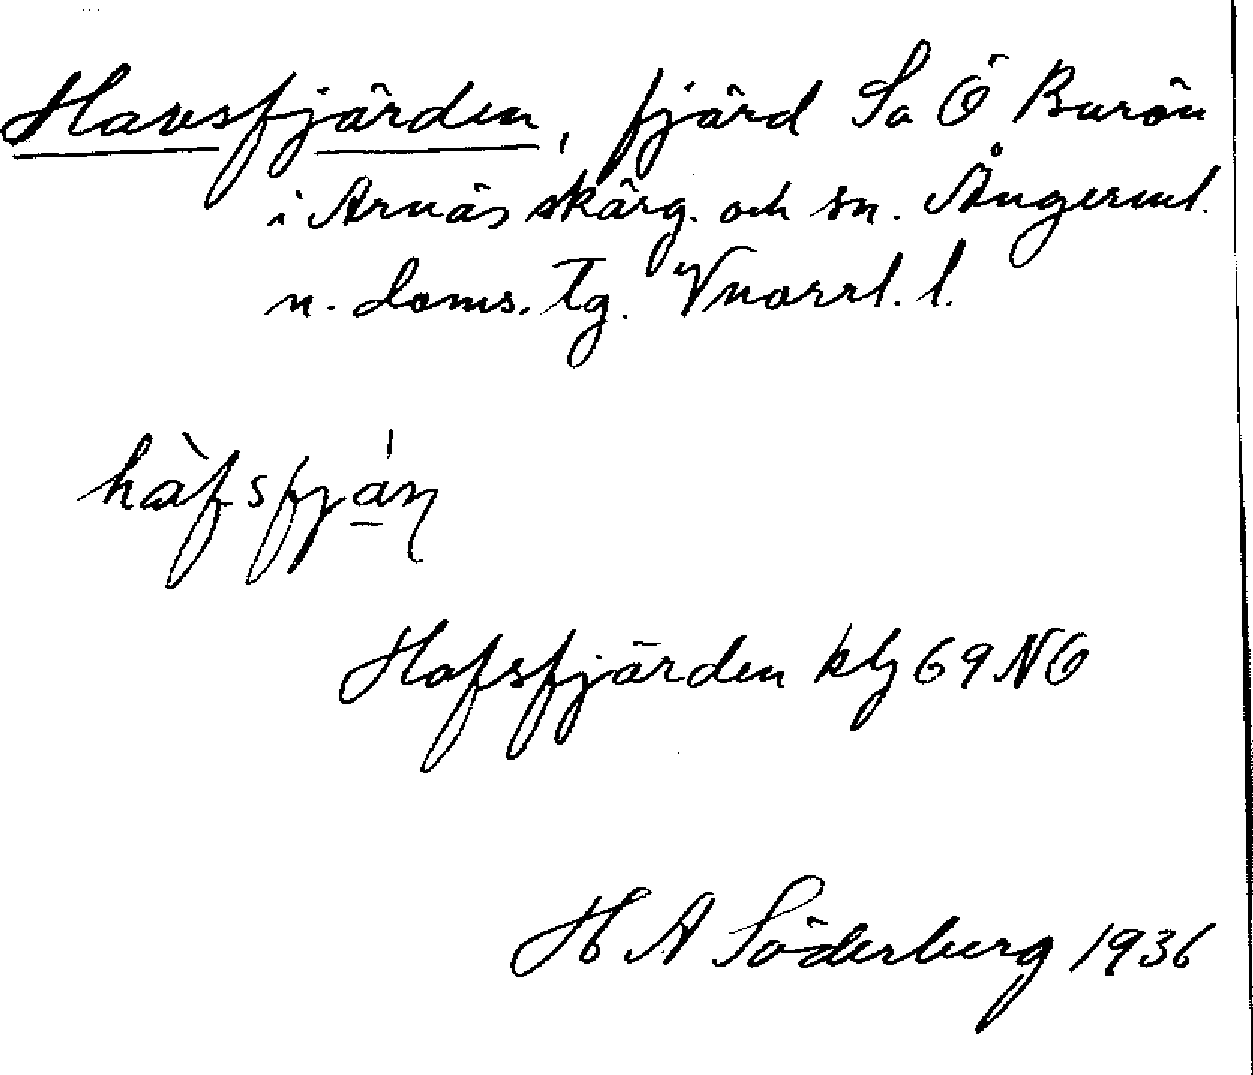 Havsfjärden, fjärd So Ö Burön
i Arnäs skärg. och sn. Ångerml.
n. doms. tg. Vnorrl. l.
hàfsfjá̠ṇ
Hafsfjärden kbl 69 NO
H A Söderberg 1936